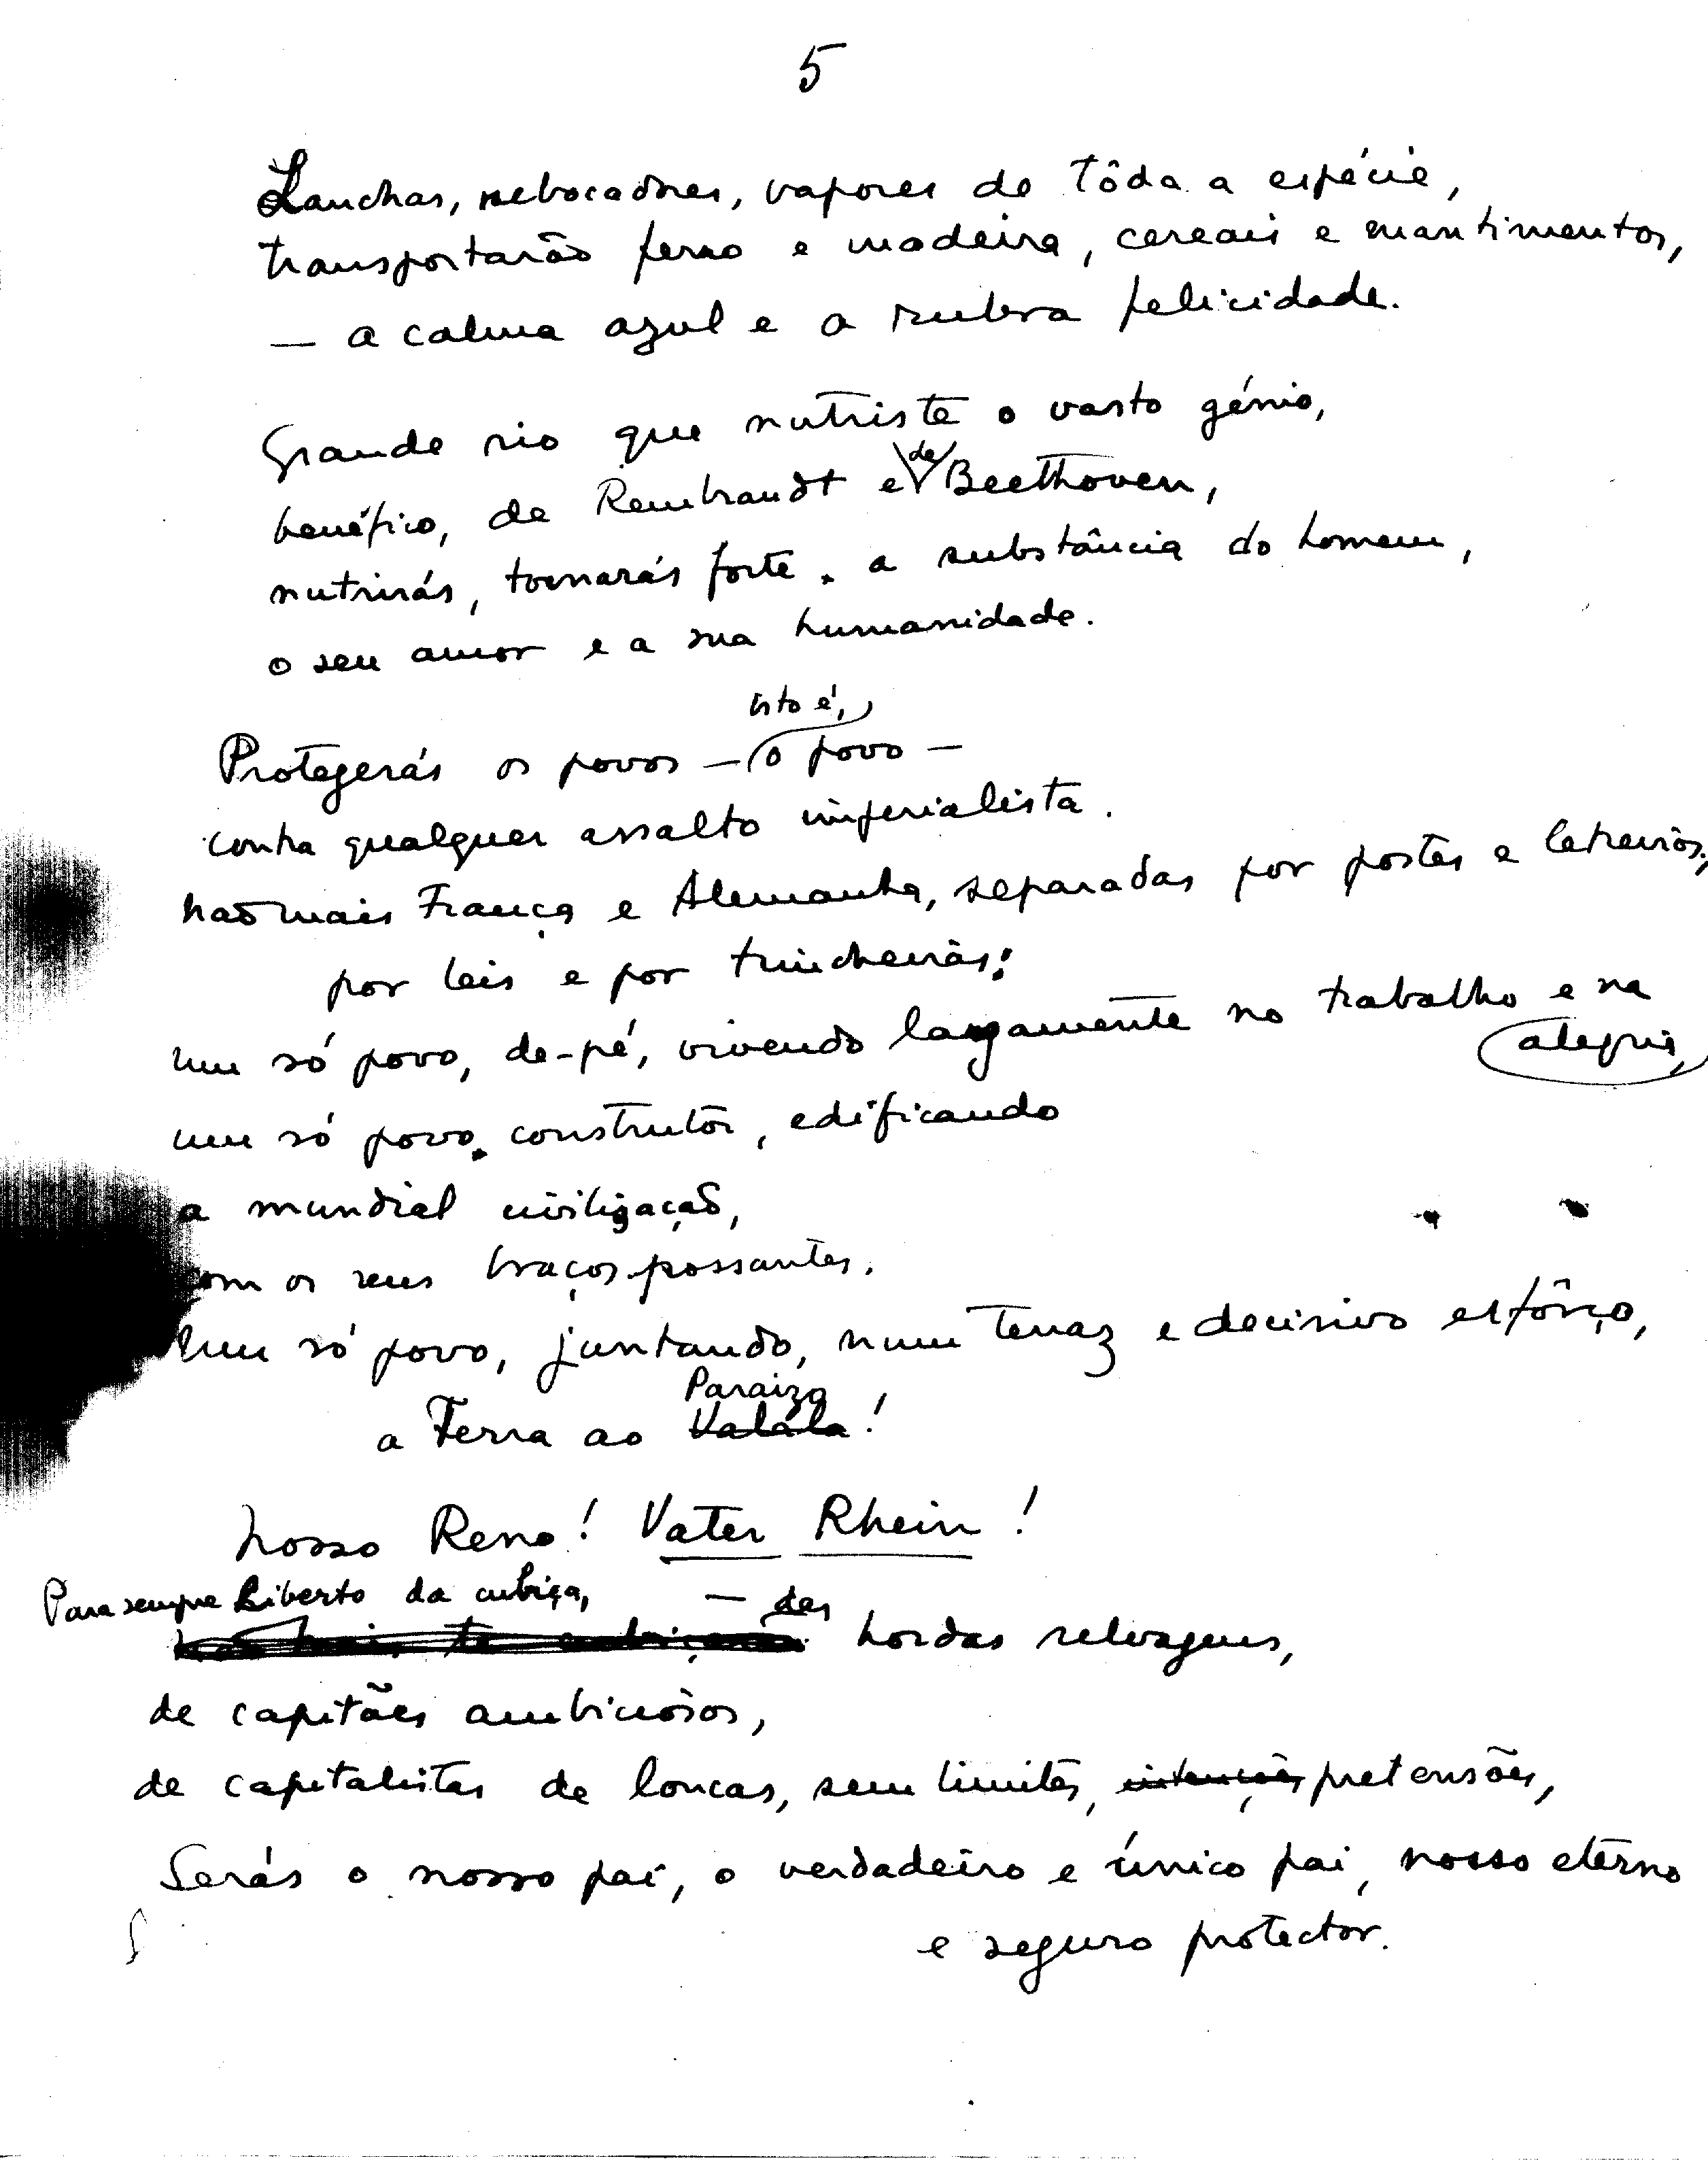 5
Lanchas, rebocadores, vapores de tôda a espécie,
transportarão ferro e madeira, cereais e mantimentos,
— a calma azul e a rubra felicidade.
Grande rio que nutriste o vasto génio,
benéfico, de Rembrandt e de Beethoven,
nutrirás, tornarás forte a substância do homem,
o seu amor e a sua humanidade.
isto é,
Protegerás os povos — o povo —
contra qualquer assalto imperialista.
Não mais França e Alemanha, separadas por postes e letreiros,
por leis e por trincheiras!
Um só povo, de-pé, vivendo largamente no trabalho e na
alegria,
um só povo construtor, edificando
a mundial civilização,
com os seus braços possantes.
Um só povo, juntando, num tenaz e decisivo esfôrço,
Paraizo
a Terra ao Valála!
Nosso Reno! Vater Rhein!
Para sempre Liberto da cubiça, — das
hordas selvagens,
de capitães ambiciosos,
de capitalistas de loucas, sem limites, intenções pretensões,
Serás o nosso pai, o verdadeiro e único pai, nosso eterno
e seguro protector.